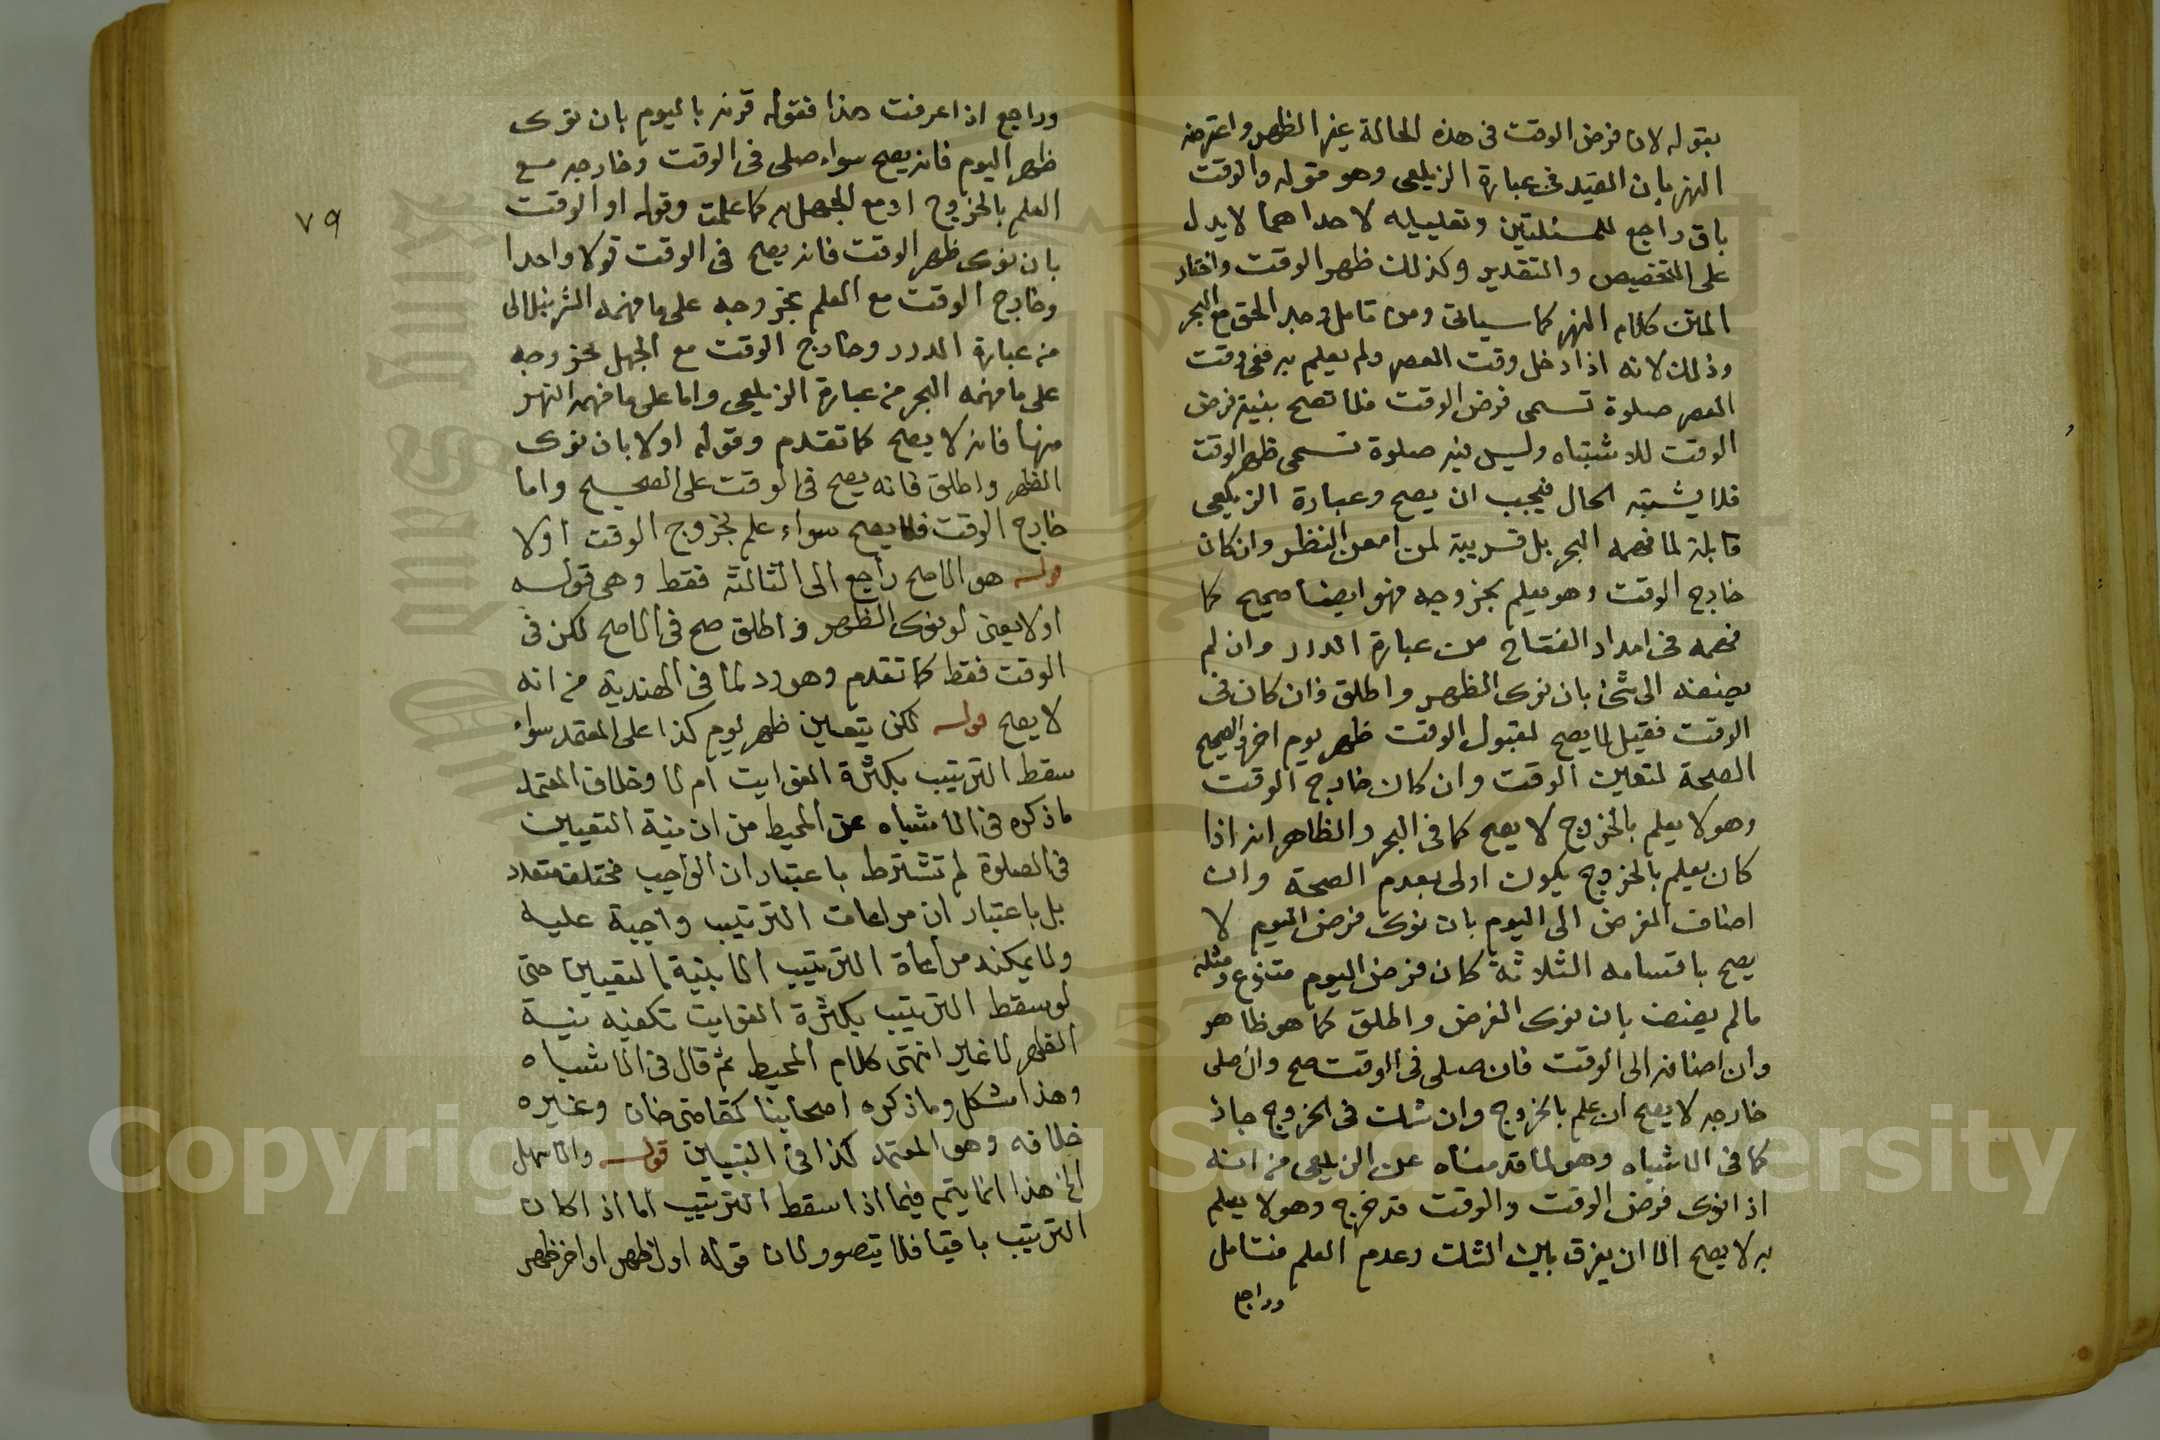 بقوله لان فرض الوقت فى هذه الحالة غير الظهر واعترضه
النهر بان القيد فى عبارة الزيلعى وهو قوله والوقت
باق راجع للمسئلتين وتعليله لاحداهما لا يدل
على التخصيص والتقدير وكذلك ظهر الوقت واختار
الماتن كلام النهر كما سياتى ومن تامل وجد الحق مع البحر
وذلك لانه اذا دخل وقت العصر ولم يعلم به ففى وقت
العصر صلوة تسمى فرض الوقت فلا تصح بنية فرض
الوقت للاشتباه وليس فيه صلوة تسمى ظهر الوقت
فلا يشتبه الحال فيجب ان يصح وعبارة الزيلعى
قابلة لما فهمه البحر بل قريبة لمن امعن النظر وان كان
خارج الوقت وهو يعلم بخروجه فهو ايضا صحيح كما
فهمه فى امداد الفتاح من عبارة الدرر وان لم
يضفه الى شئ بان نوى الظهر واطلق فان كان فى
الوقت فقيل لا يصح لقبول الوقت ظهر يوم اخر والصحيح
الصحة لتعين الوقت وان كان خارج الوقت
وهو لا يعلم بالخروج لا يصح كما فى البحر والظاهر انه اذا
كان يعلم بالخروج يكون اولى بعدم الصحة وان
اضاف الفرض الى اليوم بان نوى فرض اليوم لا
يصح باقسامه الثلاثة كان فرض اليوم متنوع ومثله
مالم يضف بان نوى الفرض واطلق كما هو ظاهر
وان اضافه الى الوقت فان صلى فى الوقت صح وان صلى
خارجه لا يصح ان علم بالخروج وان شك فى الخروج جاز
كما فى الاشباه وهو لما قدمناه عن الزيلعى من انه
اذا نوى فرض الوقت والوقت قد خرج وهو لا يعلم
به لا يصح الا ان يفرق بين الشك وعدم العلم فتامل
وراجع
٧٩
وراجع اذا عرفت هذا فقوله قرنه باليوم بان نوى
ظهر اليوم فانه يصح سواء صلى فى الوقت وخارجه مع
العلم بالخروج او مع الجهل به كما علمت وقوله او الوقت
بان نوى ظهر الوقت فانه يصح فى الوقت قولا واحدا
وخارج الوقت مع العلم بخروجه على ما فهمه الشرنبلالى
من عبارة الدرر وخارج الوقت مع الجهل بخروجه
على ما فهمه البحر من عبارة الزيلعى واما على ما فهمه النهر
منها فانه لا يصح كما تقدم وقوله اولا بان نوى
الظهر واطلق فانه يصح فى الوقت على الصحيح واما
خارج الوقت فلا يصح سواء علم بخروج الوقت اولا
قوله هو الاصح راجع الى الثالثة فقط وهى قوله
اولا يعنى لو نوى الظهر واطلق صح فى الاصح لكن فى
الوقت فقط كما تقدم وهو رد لما فى الهندية من انه
لا يصح قوله لكن يتعين ظهر يوم كذا على المعتمد سواء
سقط الترتيب بكثرة الفوايت ام لا وخلاف المعتمد
ما ذكره فى الاشباه عن المحيط من ان نية التعيين
فى الصلوة لم تشترط باعتبار ان الواجب مختلف متعدد
بل باعتبار ان مراعات الترتيب واجبة عليه
ولا يمكنه مراعاة الترتيب الا بنية التعيين حتى
لو سقط الترتيب بكثرة الفوايت تكفيه نية
الظهر لا غير انتهى كلام المحيط ثم قال فى الاشباه
وهذا مشكل وما ذكره اصحابنا كقاضى خان وغيره
خلافه وهو المعتمد كذا فى التبيين قوله والاسهل
الخ هذا انما يتم فيما اذا سقط الترتيب اما اذا كان
الترتيب باقيا فلا يتصور لان قوله اول ظهر او اخر ظهر